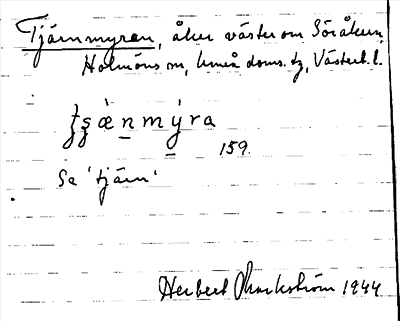 Tjärnmyran, åker väster om Söråkern,
Holmöns sn, Umeå doms. tg, Västerb. l.
ʈʂǽn̲mý̲ra
159.
Se 'tjärn'.
Herbert Markström 1944